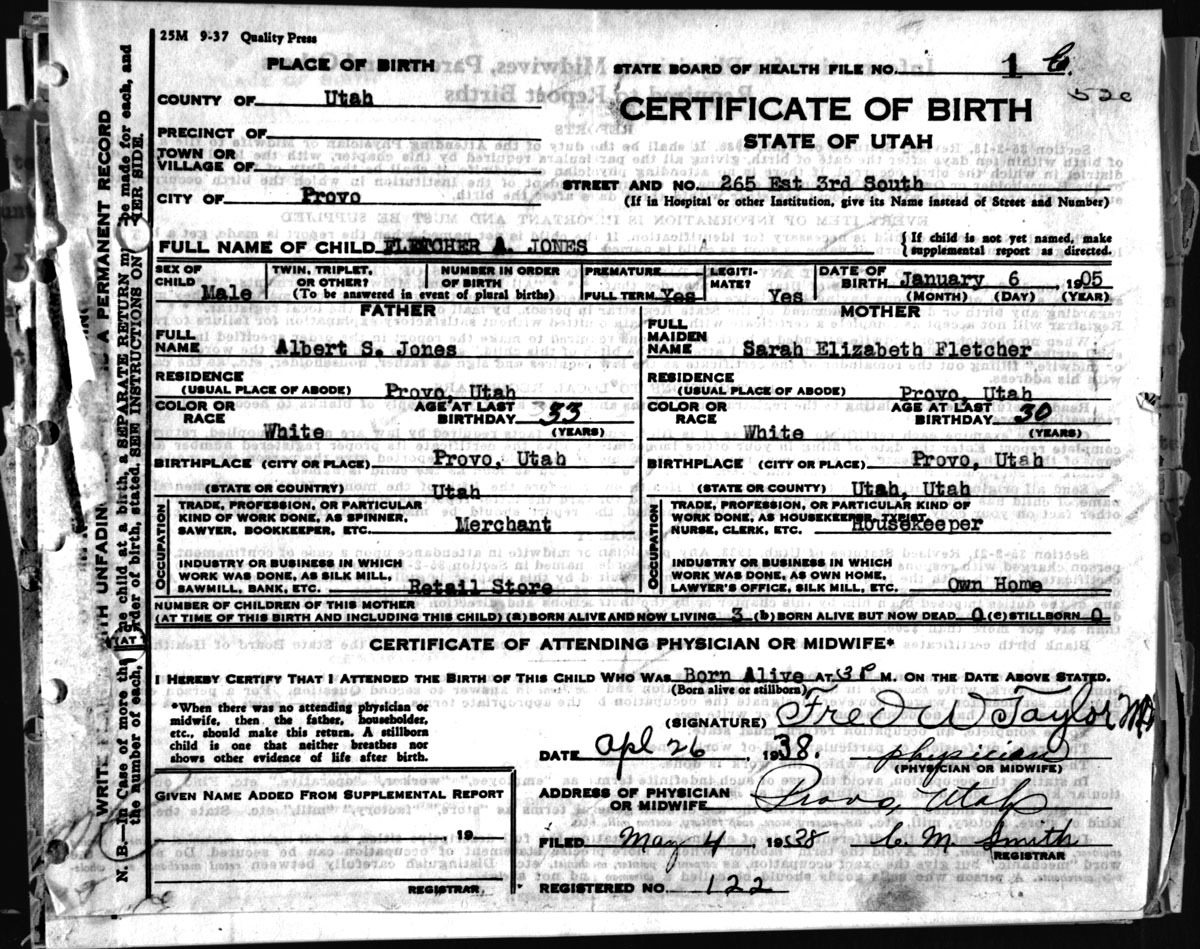 25M 9-37 Quality Press
PLACE OF BIRTH
STATE BOARD OF HEALTH FILE NO. 1
COUNTY OF Utah
CERTIFICATE OF BIRTH
PRECINCT OF
STATE OF UTAH
TOWN OR
VILLAGE OF
STREET AND NO. 265 Est 3rd South
CITY OF Provo
(If in Hospital or other Institution, give its Name instead of Street and Number)
FULL NAME OF CHILD FLETCHER A. JONES
{ If child is not yet named, make
supplemental report as directed.
SEX OF
CHILD Male
TWIN, TRIPLET,
OR OTHER?
NUMBER IN ORDER
OF BIRTH
(To be answered in event of plural births)
PREMATURE
FULL TERM Yes
LEGITI-
MATE? Yes
DATE OF
BIRTH January 6, 1905
(MONTH) (DAY) (YEAR)
FATHER
FULL
NAME Albert S. Jones
RESIDENCE
(USUAL PLACE OF ABODE) Provo, Utah
COLOR OR
RACE White
AGE AT LAST
BIRTHDAY 33
(YEARS)
BIRTHPLACE (CITY OR PLACE) Provo, Utah
(STATE OR COUNTRY) Utah
OCCUPATION
TRADE, PROFESSION, OR PARTICULAR
KIND OF WORK DONE, AS SPINNER,
SAWYER, BOOKKEEPER, ETC. Merchant
INDUSTRY OR BUSINESS IN WHICH
WORK WAS DONE, AS SILK MILL,
SAWMILL, BANK, ETC. Retail Store
MOTHER
FULL
MAIDEN
NAME Sarah Elizabeth Fletcher
RESIDENCE
(USUAL PLACE OF ABODE) Provo, Utah
COLOR OR
RACE White
AGE AT LAST
BIRTHDAY 30
(YEARS)
BIRTHPLACE (CITY OR PLACE) Provo, Utah
(STATE OR COUNTY) Utah, Utah
OCCUPATION
TRADE, PROFESSION, OR PARTICULAR KIND OF
WORK DONE, AS HOUSEKEEPER, TYPIST,
NURSE, CLERK, ETC. Housekeeper
INDUSTRY OR BUSINESS IN WHICH
WORK WAS DONE, AS OWN HOME,
LAWYER'S OFFICE, SILK MILL, ETC. Own Home
NUMBER OF CHILDREN OF THIS MOTHER
(AT TIME OF THIS BIRTH AND INCLUDING THIS CHILD) (a) BORN ALIVE AND NOW LIVING 3 (b) BORN ALIVE BUT NOW DEAD 0 (c) STILLBORN 0
CERTIFICATE OF ATTENDING PHYSICIAN OR MIDWIFE*
I HEREBY CERTIFY THAT I ATTENDED THE BIRTH OF THIS CHILD WHO WAS Born Alive AT 3P M. ON THE DATE ABOVE STATED.
(Born alive or stillborn)
*When there was no attending physician or
midwife, then the father, householder,
etc., should make this return. A stillborn
child is one that neither breathes nor
shows other evidence of life after birth.
(SIGNATURE) Fred W Taylor MD
DATE Apl 26 1938. physician
(PHYSICIAN OR MIDWIFE)
GIVEN NAME ADDED FROM SUPPLEMENTAL REPORT
, 19
REGISTRAR,
ADDRESS OF PHYSICIAN
OR MIDWIFE Provo, Utah
FILED May 4 1938 C. M. Smith
REGISTRAR
REGISTERED NO. 122